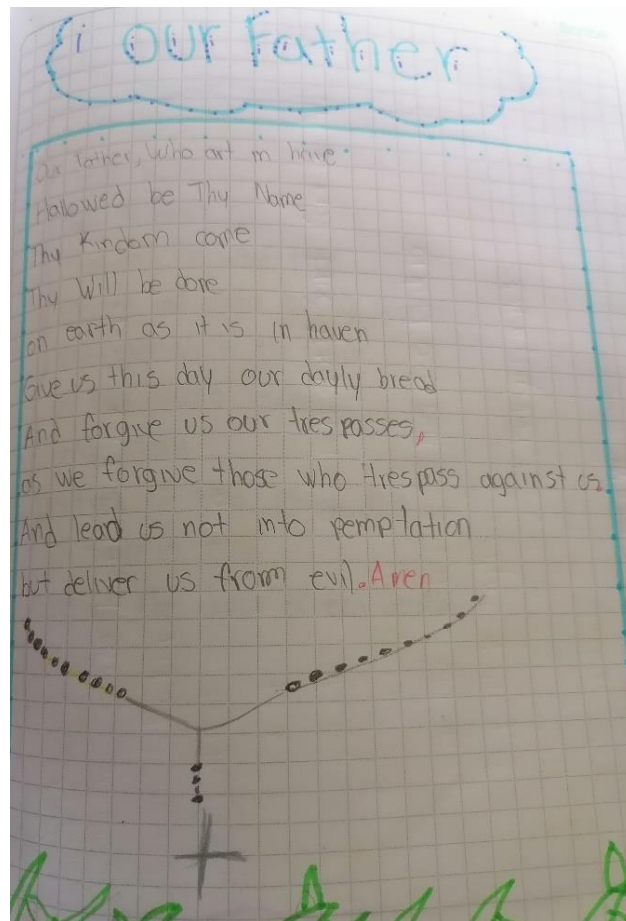 ¡ Our Father
Our Father, Who art in have
Hallowed be Thy Name
Thy Kindom come
Thy Will be done
on earth as it is in haven
Give us this day our dayly bread
And forgive us our trespasses,
as we forgive those who trespass against us.
And lead us not into pemptation
but deliver us from evil. Amen